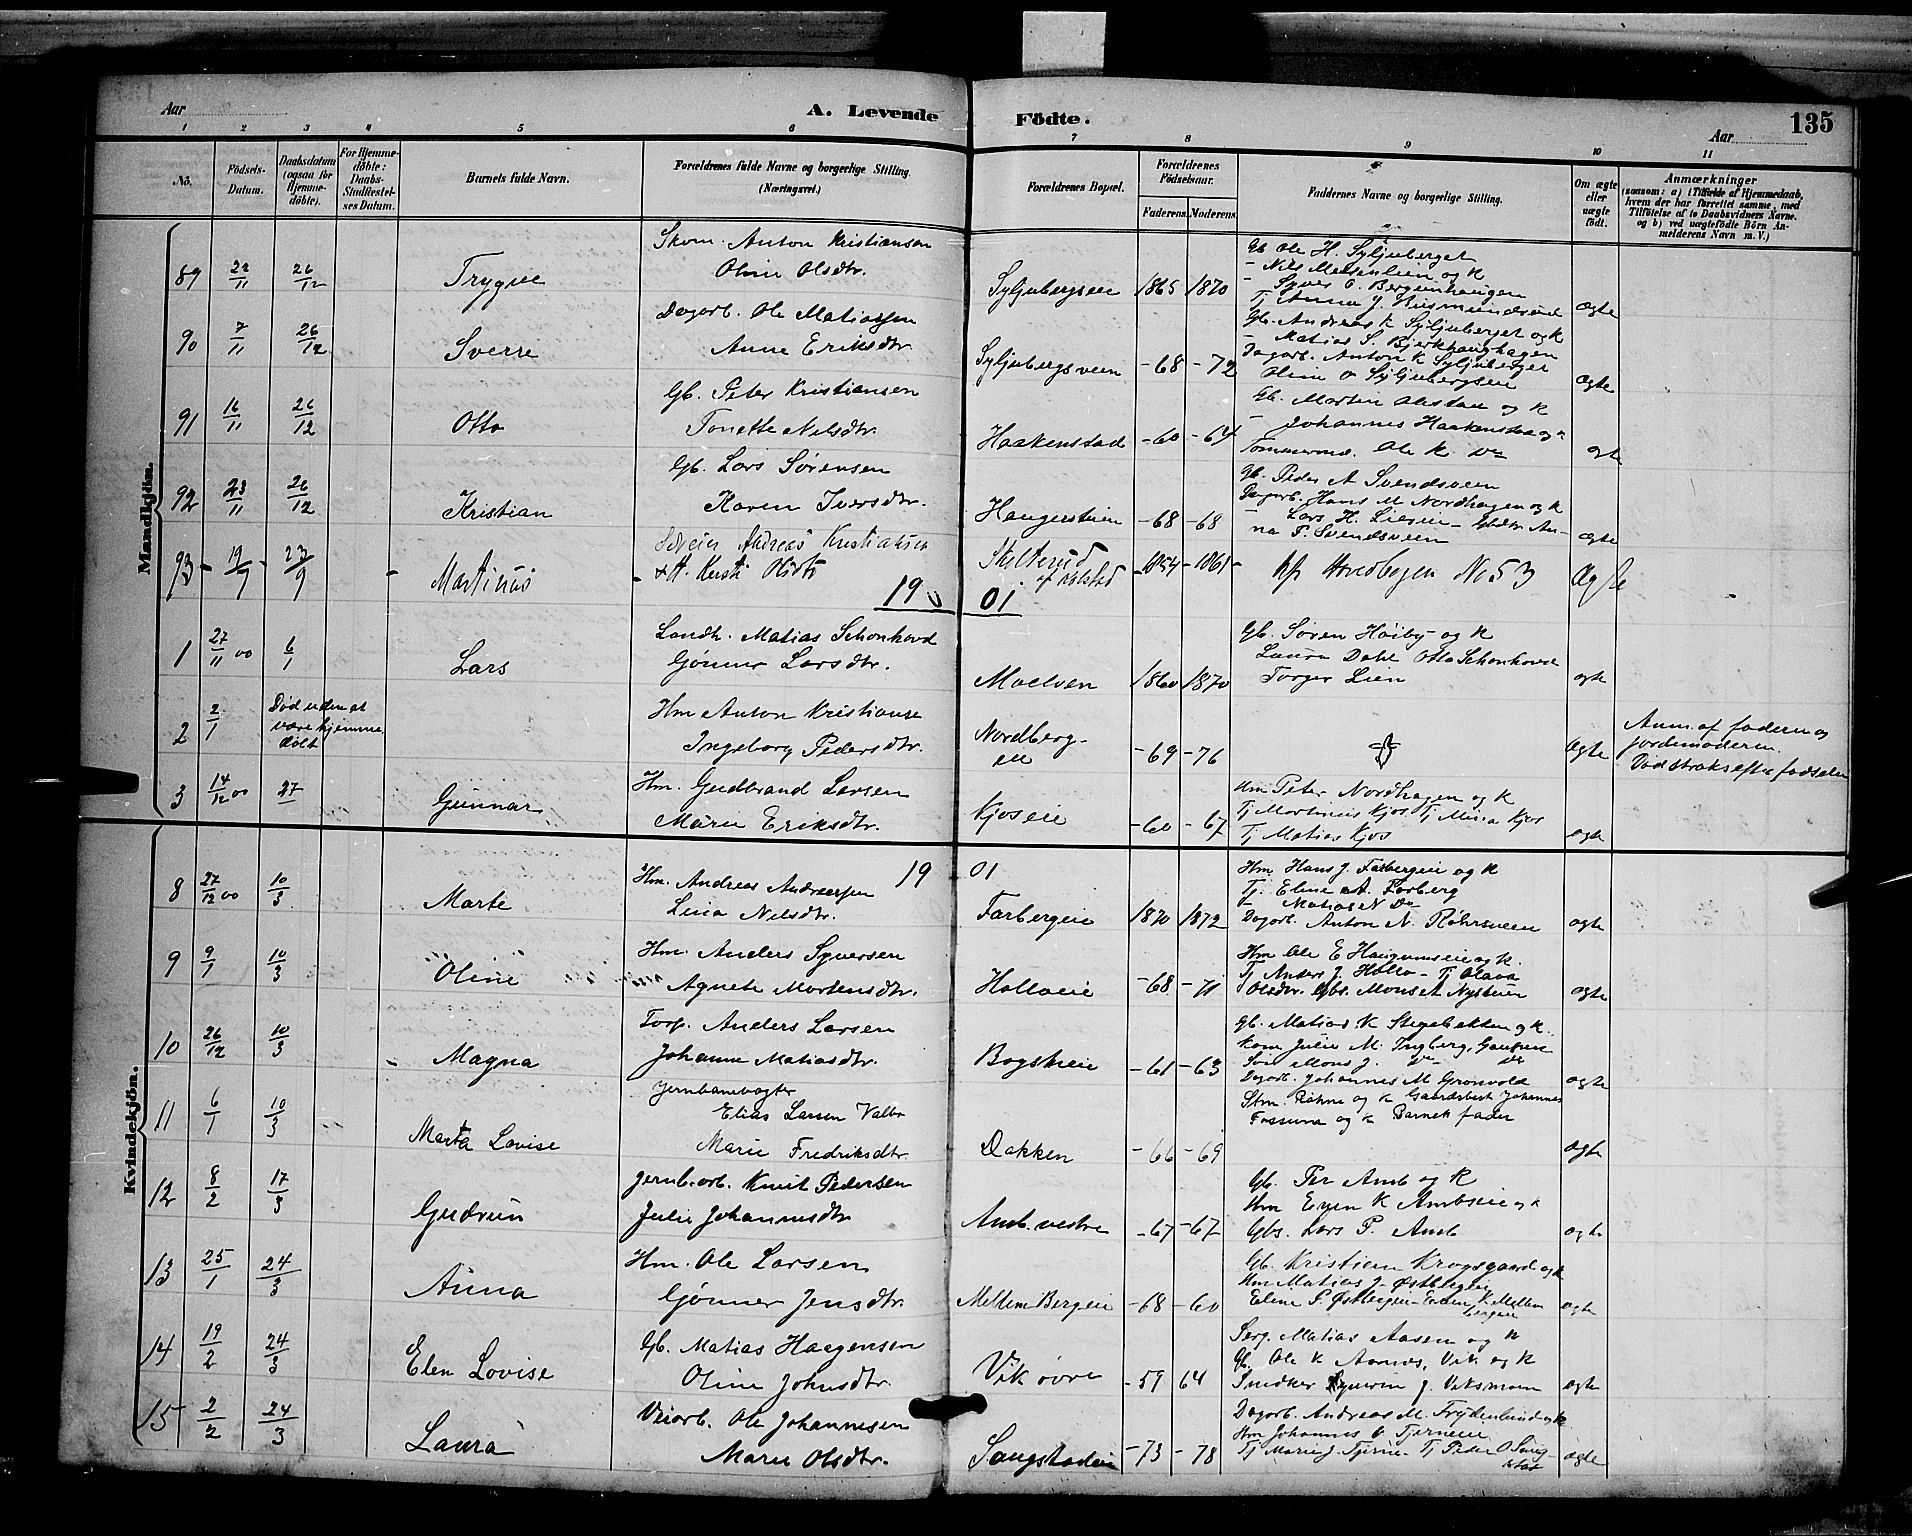 Aar
A. Levende
Födte.
Aar
135
1 2 3 4 5 6 7 8 9 10 11
No.
Födsels-Datum.
Daabsdatum (ogsaa for Hjemme-döbte).
For Hjemme-döbte: Daabs-Stadfæstel-ses Datum.
Barnets fulde Navn.
Forældrenes fulde Navne og borgerlige Stilling. (Næringsvei.)
Forældrenes Bopæl.
Forældrenes Födselsaar.
Faderens. Moderens.
Faddernes Navne og borgerlige Stilling.
Om ægte eller uægte födt.
Anmærkninger
(saasom: a) i Tilfælde af Hjemmedaab, hvem der har forrettet samme, med Tilföielse af to Daabsvidners Navne. og b) ved uægtefödte Börn Anmelderens Navn m. V.)
Mandkjön.
89 22/11 26/12 Trygve
Skom. Anton Kristiansen
Oline Olsdtr.
Syljubergseie 1865 1870
Gb. Ole H. Syljuberget
- Nils Melsenlien og K
ægte
90 7/11 26/12 Sverre
Dagarb. Ole Matiassen
Anne Eriksdtr.
Syljubergsveen -68 -72
Gb. Andreas K Syljuberget og K
- Matias S. Bjerkhaughagen
Dagarb. Anton K Syljuberget
Oline O Syljubergseie
ægte
91 16/11 26/12 Otto
Gb. Peter Kristiansen
Tonette Nilsdtr.
Haakenstad -60 -64
Gb. Martin Alstad og K
- Johannes Haakenstad og K
Tømmermd. Ole K Do
ægte
92 23/11 26/12 Kristian
Gb. Lars Sørensen
Karen Iversdtr.
Haugersteien -68 -68
Gb. Peder A Svendsveen
Dagarb. Hans M Nordhagen og K
- Lars H. Lieseie - Gbdtr. An-
na P. Svendsveen
ægte
93 - 19/7 23/9 - Martinus
Andreas Kristiansen
- & H. Kersti Olsdtr
Skilterud
af Alstad
-1854 -1861 -
Kfr Hovedbogen No 53 Ægte
1901
1 27/11 00 6/1 Lars
Landh. Matias Schonhovd
Gjønner Larsdtr.
Moelven 1860 1870
Gb. Søren Høiby og K
Laura Dahl Otto Schonhovd
Torger Lien
ægte
2 2/1 Død uden at
være hjemme
døbt
Hm Anton Kristianse
Ingeborg Pedersdtr.
Nordberg-
eie
-69 -76
ægte
Anm. af faderen og
jordemoderen.
Død straks efter fødselen
3 14/12 00 27 Gunnar
Hm. Gudbrand Larsen
Marie Eriksdtr.
Kjoseie -60 -67
Hm Peter Nordhagen og K
Tj Martinus Kjos Tj Mina Kjos
Tj Matias Kjos
ægte
Kvindekjön.
1901
8 27/12 00 10/3 Marte
Hm. Andreas Andreassen
Lina Nilsdtr.
Farbergeie 1870 1872
Hm Hans J. Farbergeie og K
Tj. Eline A. Farberg
T- Matias N Do
Dagarb. Anton N. Røhrsveen
ægte
9 9/1 10/3 Oline
Hm. Anders Syversen
Agnete Mortensdtr.
Holloeie -68 -71
Hm Ole E Haugumseie og K.
Tj Anders J. Hollo - Tj Olava
Olsdtr. Gbs. Mons A Nysteien
ægte
10 26/12 10/3 - Magna
Torp. Anders Larsen
Johanne Matiasdtr.
Bogskeie -61 -63
Gb. Matias K Stigebakken og K.
Kom Julie M. Ingberg,
Søn Mons J. Do Do
Dagarb. Johannes M Grønvold
ægte
11 6/1 10/3 Marta Lovise
Jernbanevogter
Elias Larsen Valbr
Marie Fredriksdtr.
Dakken -66 -69
Stm. Røhne og K Gaardsbest Johannes
Fossum og K Barnets fader
ægte
12 8/2 17/3 Gudrun
Jernb.arb. Knut Pedersen
Julie Johannesdtr.
Amb. vestre -67 -67
Gb. Per Amb og K
Hm Even K Ambseie og K
Gbs. Lars P. Amb
ægte
13 25/1 24/3 Anna
Hm. Ole Larsen
Gjønner Jensdtr.
Mellem Bergeie -68 -60
Gb. Kristian Krogsgaard og K
Hm Matias J. Østbergeie
Eline P. Østbergeie - Even K. Mellem
bergeie
ægte
14 19/2 24/3 Elen Lovise
Gb. Matias Haagensen
Oline Johnsdtr.
Vik øvre -59 64
Serg. Matias Aasen og K
Gb. Ole K Aarnes, Vik og K
Snedker Syverin J. Viksmoen
ægte
15 2/2 24/3 Laura
Veiarb. Ole Johannesen
Marie Olsdtr.
Saugstadeie -73 -78
Dagarb. Andreas M. Frydenlund og K
Hm Johannes O Tjerneie
Tj Marie J. Tjerne - Tj Peder O Saug-
stad
ægte